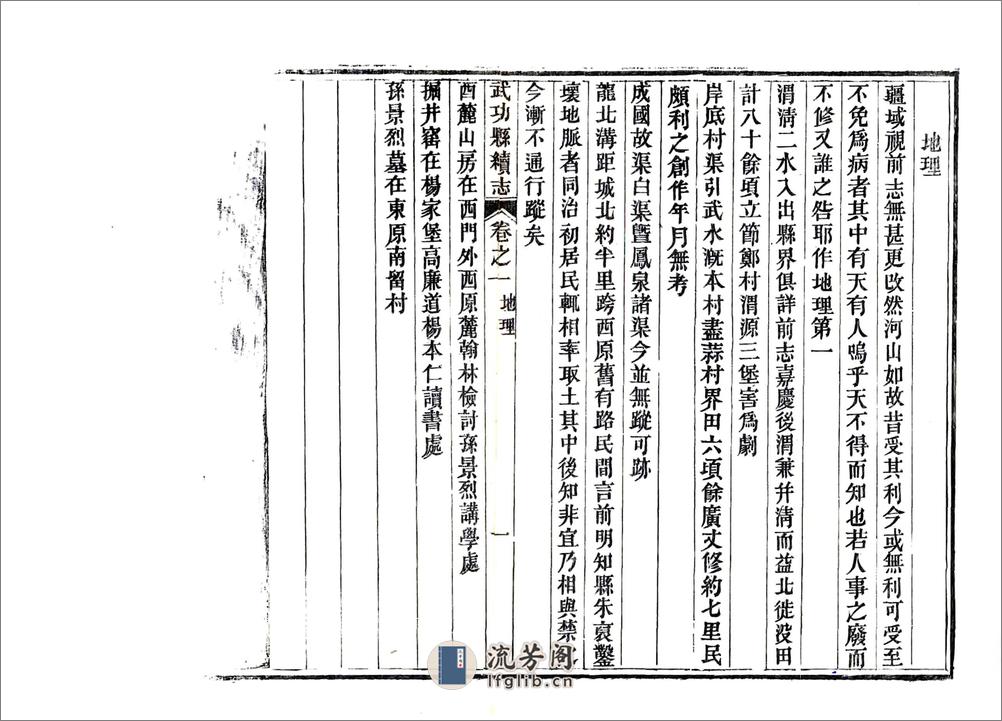 地理
疆域視前志無甚更改然河山如故昔受其利今或無利可受至
不免爲病者其中有天有人嗚乎天不得而知也若人事之廢而
不修又誰之咎耶作地理第一
渭淸二水入出縣界俱詳前志嘉慶後渭兼幷淸而益北徙没田
計八十餘頃立節鄭村渭源三堡害爲劇
岸底村渠引武水漑本村盡蒜村界田六頃餘廣丈修約七里民
頗利之創作年月無考
成國故渠白渠曁鳳泉諸渠今並無蹤可跡
龍北溝距城北約半里跨西原舊有路民間言前明知縣朱裒鑿
壞地脈者同治初居民輒相率取土其中後知非宜乃相與禁
今漸不通行蹤矣
武功縣續志 卷之一 地理 一
西麓山房在西門外西原麓翰林檢討孫景烈講學處
掘井窰在楊家堡高廉道楊本仁讀書處
孫景烈墓在東原南留村
流芳阁
lfglib.cn